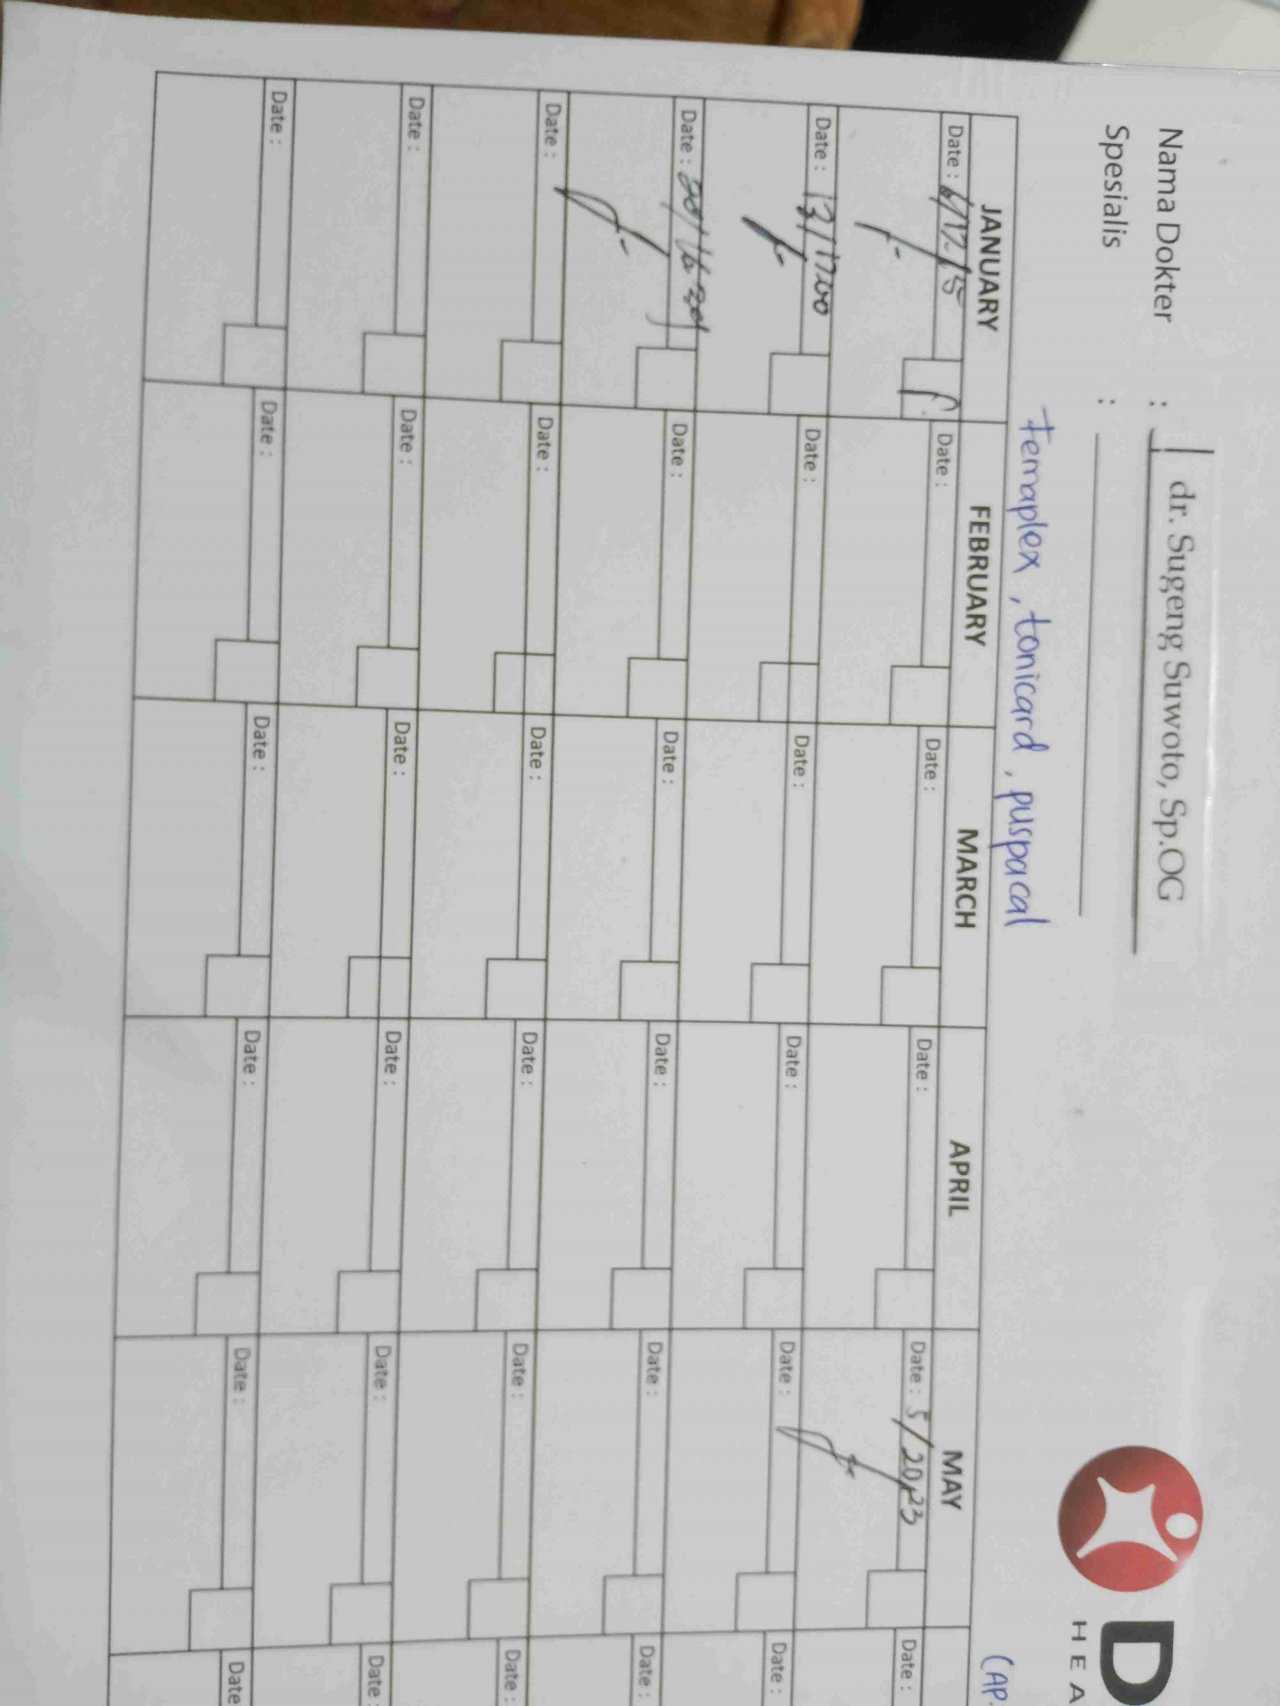 Nama Dokter : dr. Sugeng Suwoto, Sp.OG
Spesialis :
temaplex, tonicard, puspacal
D
HEA
(AP.
JANUARY FEBRUARY MARCH APRIL MAY
Date : Date : Date : Date : Date : 5/2023 Date :
Date : 13/1700 Date : Date : Date : Date : Date :
Date : Date : Date : Date : Date : Date :
Date : Date : Date : Date : Date : Date :
Date : Date : Date : Date : Date : Date :
Date : Date : Date : Date : Date : Date